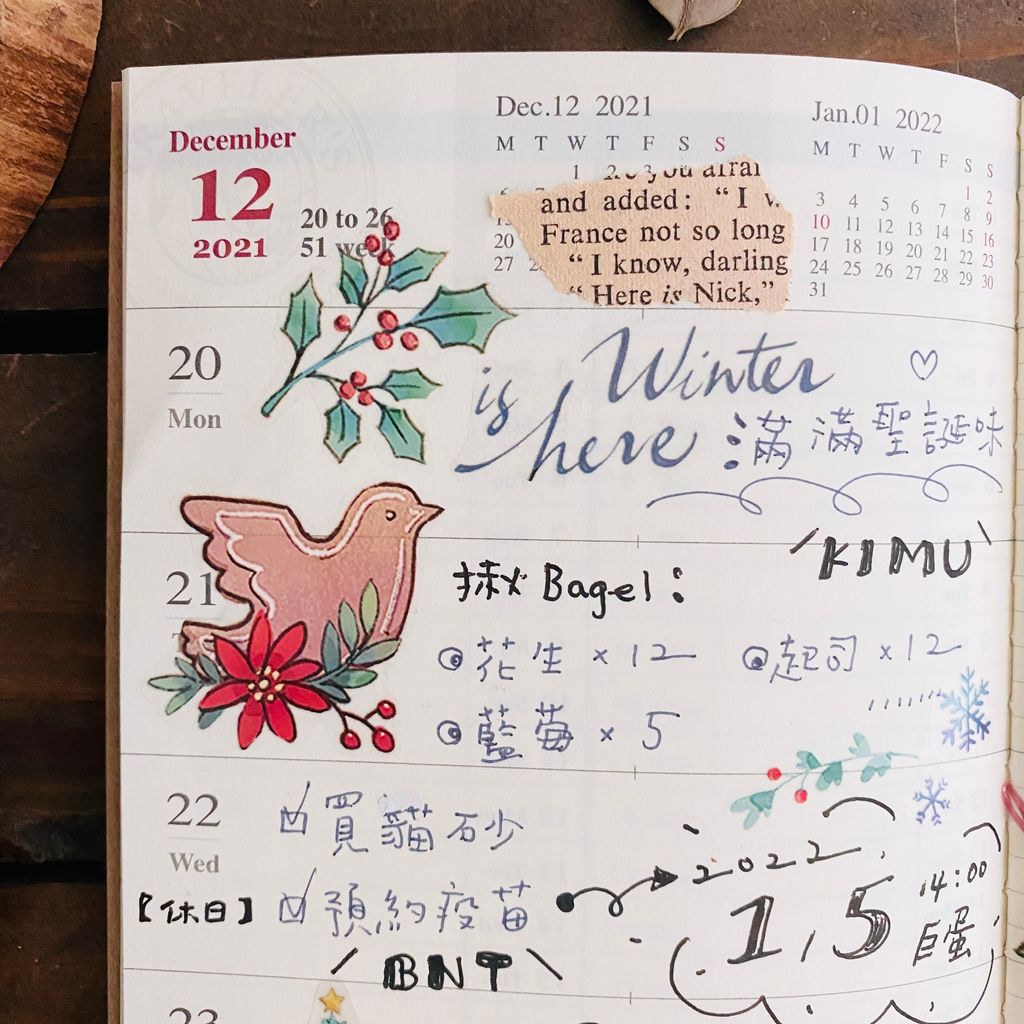 TRAVELER'S
December
12
2021
20 to 26
51 week
Dec.12 2021
M T W T F S S
1 2 3 you afrai
and added: "I w
France not so long
"I know, darling
"Here is Nick,"
20
27
Jan.01 2022
M T W T F S S
1 2
3 4 5 6 7 8 9
10 11 12 13 14 15 16
17 18 19 20 21 22 23
24 25 26 27 28 29 30
31
20
Mon
Winter
is here
滿滿聖誕味
21
揪 Bagel:
KIMU
花生 × 12
起司 × 12
藍莓 × 5
22
Wed
買貓砂
【休日】
預約疫苗
BNT
2022
1/5
14:00
巨蛋
23